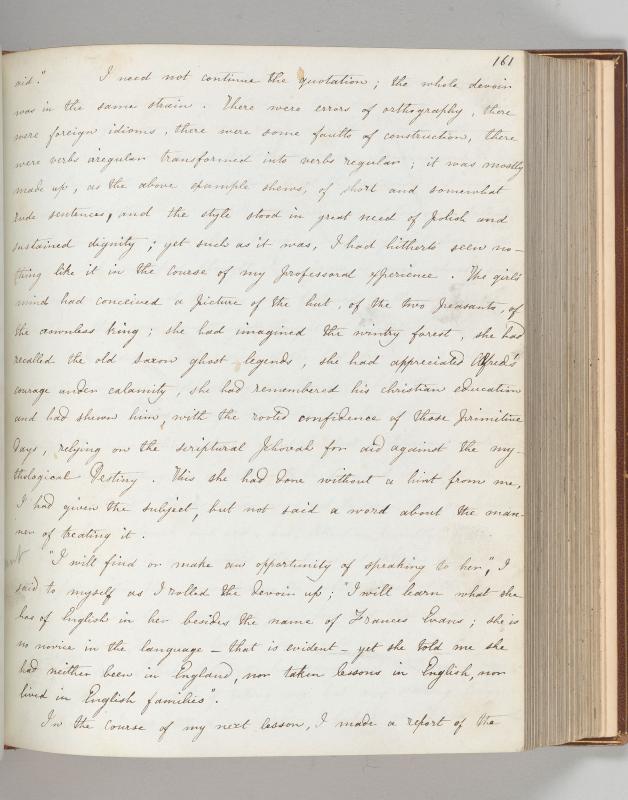 161
aid." I need not continue the quotation; the whole devoir
was in the same strain. There were errors of orthography, there
were foreign idioms, there were some faults of construction, there
were verbs irregular transformed into verbs regular; it was mostly
made up, as the above example shews, of short and somewhat
rude sentences, and the style stood in great need of polish and
sustained dignity; yet such as it was, I had hitherto seen no-
thing like it in the course of my professoral experience. The girl's
mind had conceived a picture of the hut, of the two peasants, of
the crownless king; she had imagined the wintry forest, she had
recalled the old Saxon ghost legends, she had appreciated Alfred's
courage under calamity, she had remembered his christian education
and had shewn him, with the rooted confidence of those primitive
days, relying on the scriptural Jehovah for aid against the my-
thological Destiny. This she had done without a hint from me,
I had given the subject, but not said a word about the man-
ner of treating it.
"I will find or make an opportunity of speaking to her", I
said to myself as I rolled the devoir up; "I will learn what she
has of English in her besides the name of Frances Evans; she is
no novice in the language – that is evident – yet she told me she
had neither been in England, nor taken lessons in English, nor
lived in English families".
In the course of my next lesson, I made a report of the